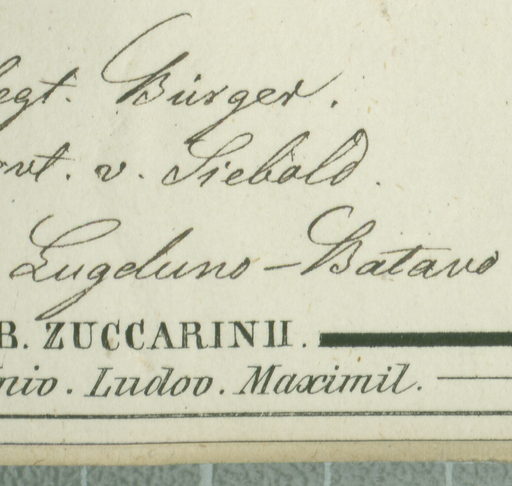 legt. Bürger.
v. Siebold.
Lugduno-Batavo
B. ZUCCARINII.
Ludov. Maximil.